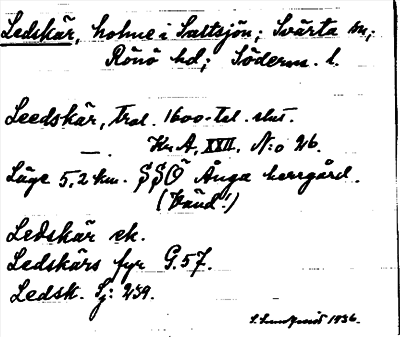 Ledskär, holme i Saltsjön; Svärta sn;
Rönö hd; Söderm. l.
Leedskär, trol. 1600-tal. slut.
— Kr. A. XXII. N:o 26.
Läge 5,2 km. SSO Ånga herrgård.
(Känd!)
Ledskär ek.
Ledskärs fyr G.57.
Ledsk. Sj: 239.
1936.